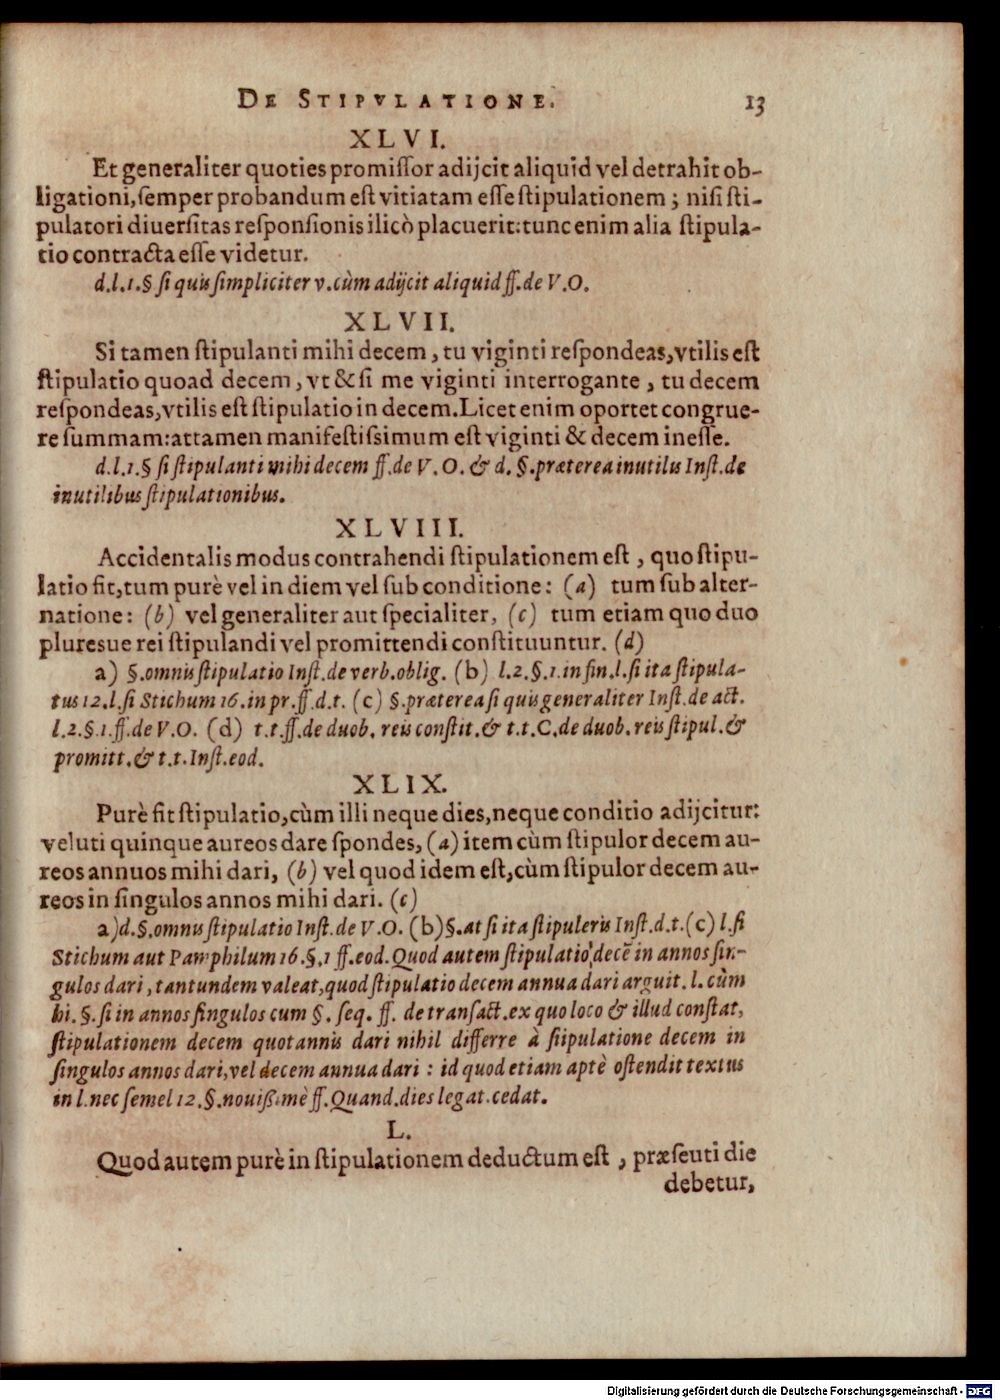 DE STIPVLATIONE. 13
XLVI.
Et generaliter quoties promiſſor adijcit aliquid vel detrahit ob-
ligationi, ſemper probandum eſt vitiatam eſſe ſtipulationem; niſi ſti-
pulatori diuerſitas reſponſionis ilicò placuerit: tunc enim alia ſtipula-
tio contracta eſſe videtur.
d.l.1.§ ſi quis ſimpliciter v. cùm adijcit aliquid ff. de V.O.
XLVII.
Si tamen ſtipulanti mihi decem, tu viginti reſpondeas, vtilis eſt
ſtipulatio quoad decem, vt & ſi me viginti interrogante, tu decem
reſpondeas, vtilis eſt ſtipulatio in decem. Licet enim oportet congrue-
re ſummam: attamen manifeſtiſsimum eſt viginti & decem ineſſe.
d.l.1.§ ſi ſtipulanti mihi decem ff. de V.O. & d. §. præterea inutilis Inſt. de
inutilibus ſtipulationibus.
XLVIII.
Accidentalis modus contrahendi ſtipulationem eſt, quo ſtipu-
latio fit, tum purè vel in diem vel ſub conditione: (a) tum ſub alter-
natione: (b) vel generaliter aut ſpecialiter, (c) tum etiam quo duo
pluresue rei ſtipulandi vel promittendi conſtituuntur. (d)
a) §. omnis ſtipulatio Inſt. de verb. oblig. (b) l.2.§.1. in fin. l. ſi ita ſtipula-
tus 12. l. ſi Stichum 16. in pr. ff. d.t. (c) §. præterea ſi quis generaliter Inſt. de act.
l.2.§.1. ff. de V.O. (d) t.t. ff. de duob. reis conſtit. & t.t. C. de duob. reis ſtipul. &
promitt. & t.t. Inſt. eod.
XLIX.
Purè fit ſtipulatio, cùm illi neque dies, neque conditio adijcitur:
veluti quinque aureos dare ſpondes, (a) item cùm ſtipulor decem au-
reos annuos mihi dari, (b) vel quod idem eſt, cùm ſtipulor decem au-
reos in ſingulos annos mihi dari. (c)
a) d.§. omnis ſtipulatio Inſt. de V.O. (b) §. at ſi ita ſtipuleris Inſt. d.t. (c) l. ſi
Stichum aut Pamphilum 16.§.1 ff. eod. Quod autem ſtipulatio decē in annos ſin-
gulos dari, tantundem valeat, quod ſtipulatio decem annua dari arguit. l. cùm
hi. §. ſi in annos ſingulos cum §. ſeq. ff. de tranſact. ex quo loco & illud conſtat,
ſtipulationem decem quotannis dari nihil differre à ſiipulatione decem in
ſingulos annos dari, vel decem annua dari: id quod etiam aptè oſtendit textus
in l. nec ſemel 12.§. nouißimè ff. Quand. dies legat. cedat.
L.
Quod autem purè in ſtipulationem deductum eſt, præſenti die
debetur,
Digitalisierung gefördert durch die Deutsche Forschungsgemeinschaft - DFG